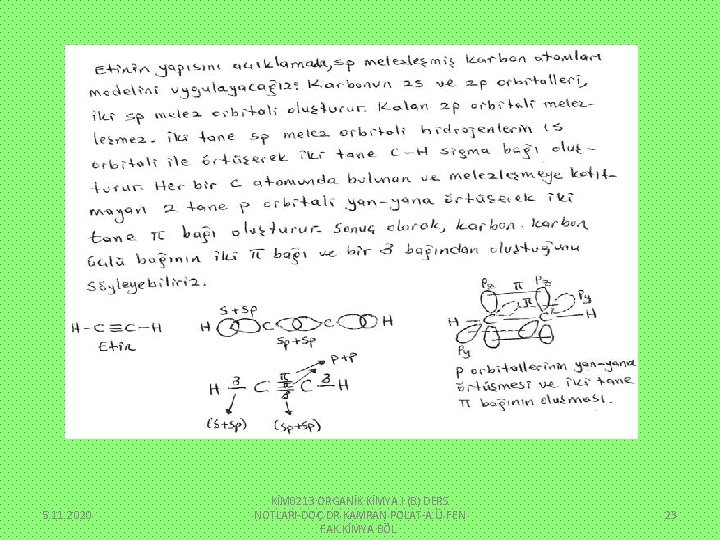 Etinin yapısını açıklamada, sp melezleşmiş karbon atomları
modelini uygulayacağız: Karbonun 2s ve 2p orbitalleri,
iki sp melez orbitali oluşturur. Kalan 2p orbitali melez-
leşmez. iki tane sp melez orbitali hidrojenlerin 1s
orbitali ile örtüşerek iki tane C-H sigma bağı oluş-
turur. Her bir C atomunda bulunan ve melezleşmeye katıl-
mayan 2 tane p orbitali yan-yana örtüşerek iki
tane π bağı oluşturur. Sonuç olarak, karbon-karbon
üçlü bağının iki π bağı ve bir 3 bağından oluştuğunu
söyleyebiliriz.
H-C≡C-H
Etin
s+sp
H C C H
sp+sp
Pz π Pz
π Py
H C C H
Py
p orbitallerinin yan-yana
örtüşmesi ve iki tane
π bağının oluşması.
p+p
H 3 C π π 3 C 3 H
(s+sp) (sp+sp)
5.11.2020
KİM0213 ORGANİK KİMYA I (B) DERS
NOTLARI-DOÇ.DR.KAMRAN POLAT-A.Ü.FEN
FAK.KİMYA BÖL
23